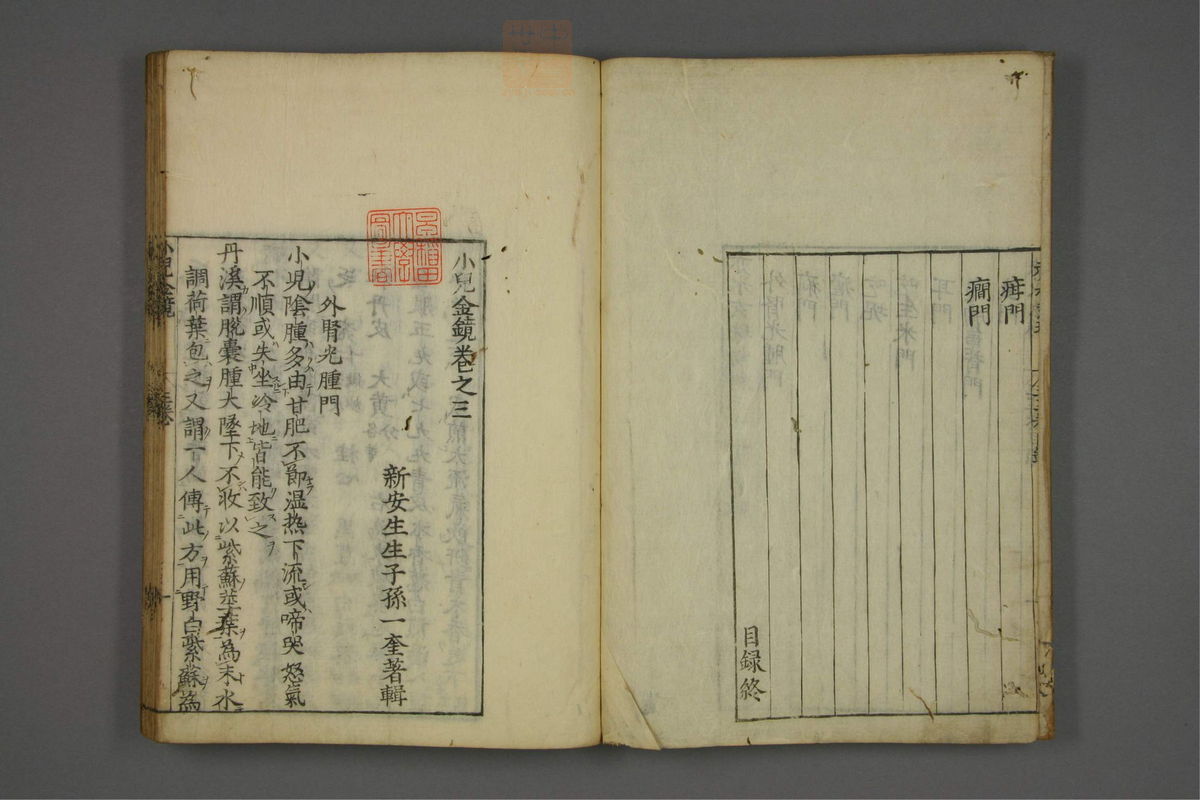 痔門
癎門
目録終
小兒金鏡卷之三
新安生生子孫一奎著輯
外腎光腫門
小児陰腫多由甘肥不節湿热下流或啼哭怒氣
不順或失坐冷地皆能致之
丹溪謂脱囊腫大墜下不収以紫蘇莖葉為末水
調荷葉包之又謂一人傳此方用野白紫蘇為
小兒金鏡